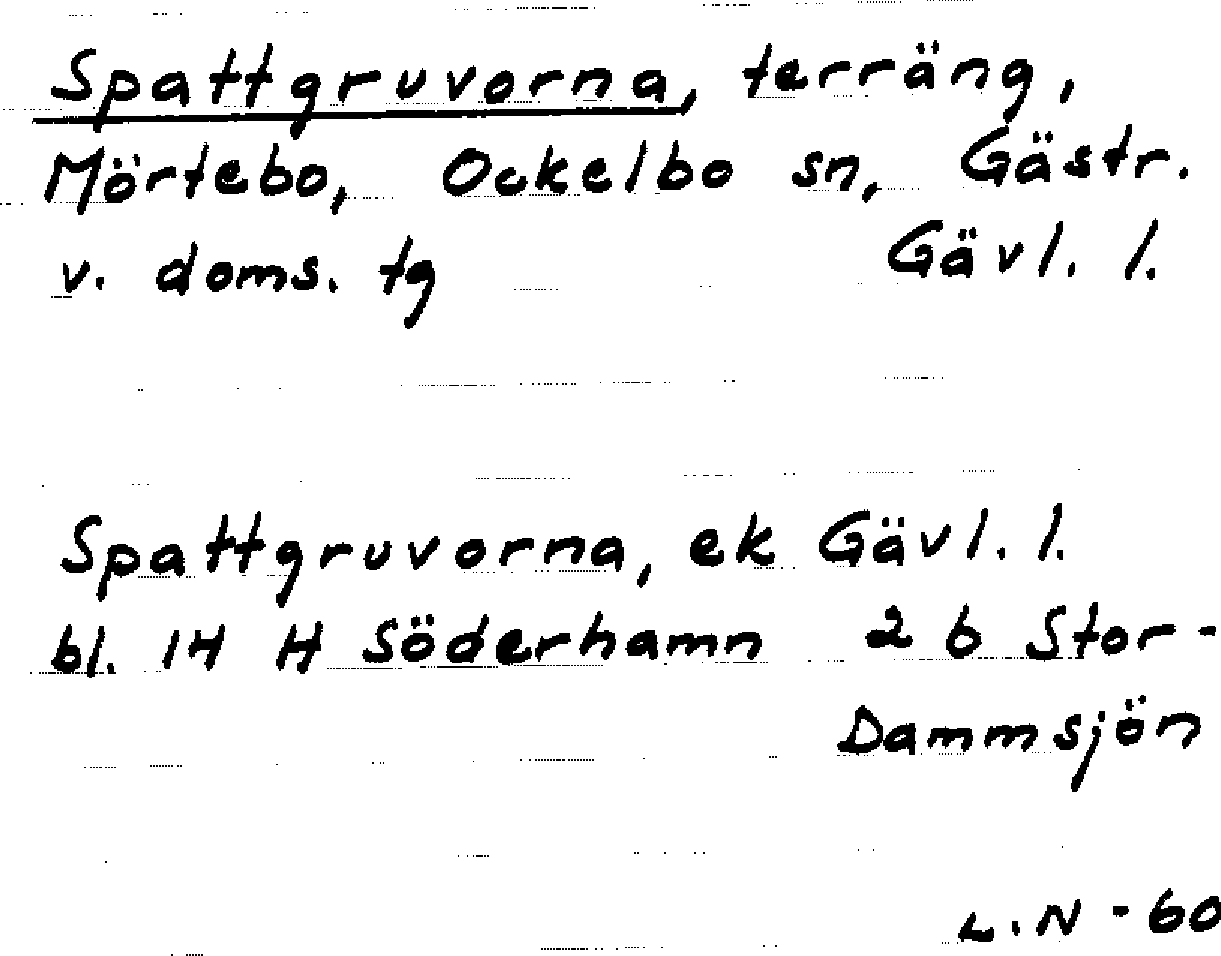 Spattgruvorna, terräng,
Mörtebo, Ockelbo sn, Gästr.
v. doms. tg Gävl. l.
Spattgruvorna, ek Gävl. l.
bl. 14 H Söderhamn 2 b Stor-
Dammsjön
L.N - 60